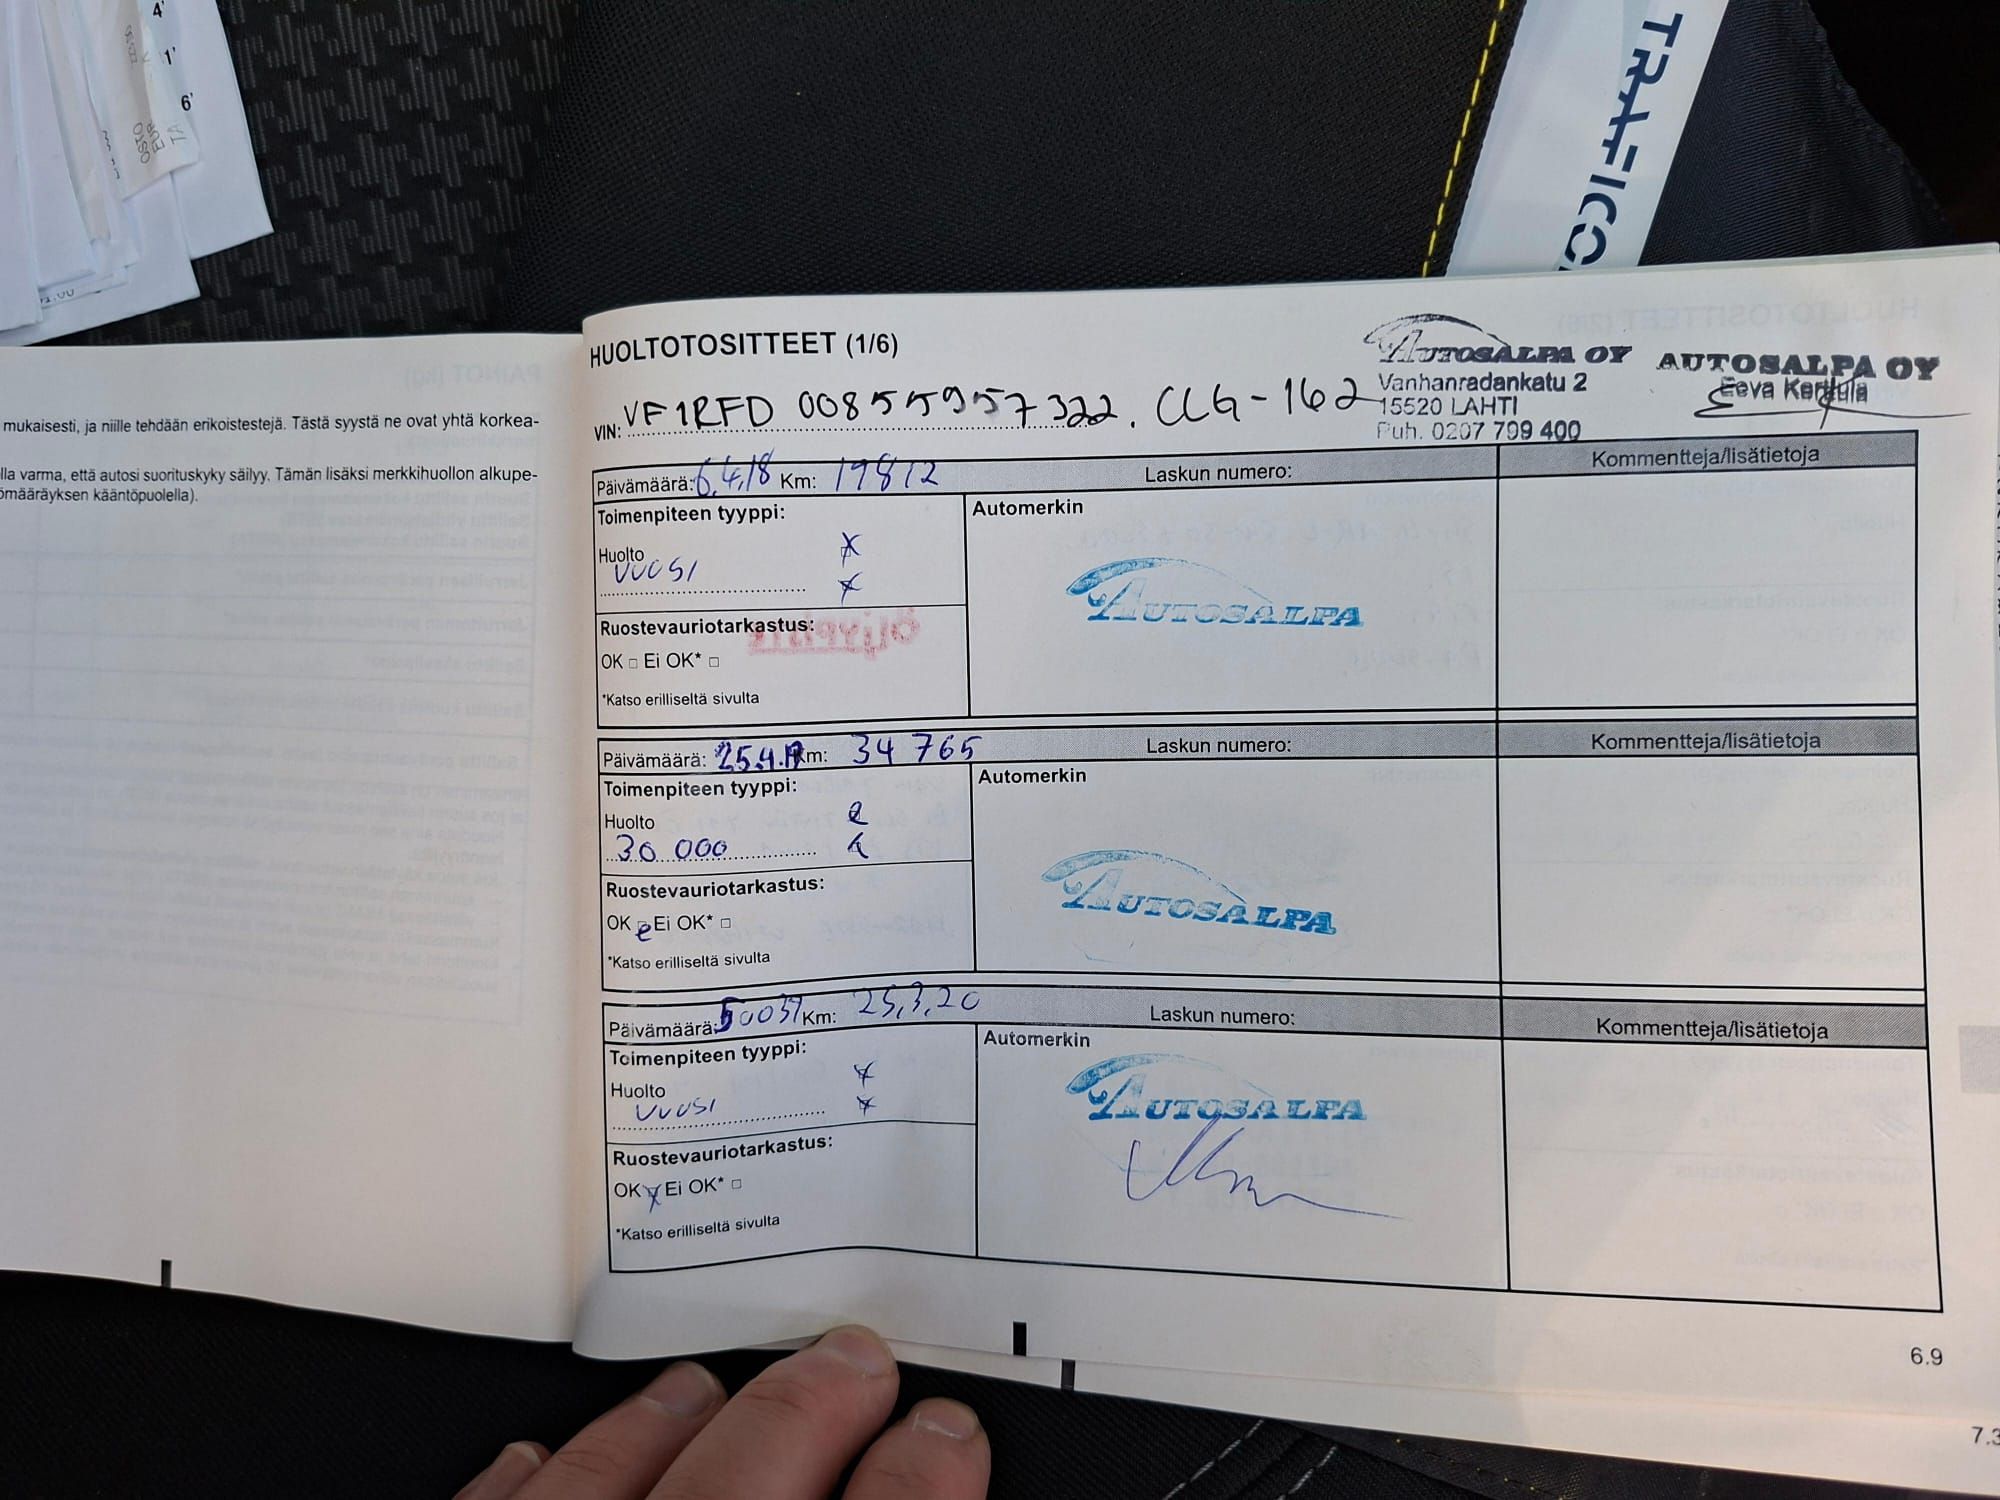 4'
1'
6'
OSTO
EUR
TA
TRAFICO
mukaisesti, ja niille tehdään erikoistestejä. Tästä syystä ne ovat yhtä korkea-
lla varma, että autosi suorituskyky säilyy. Tämän lisäksi merkkihuollon alkupe-
ömääräyksen kääntöpuolella).
HUOLTOTOSITTEET (1/6)
AUTOSALPA OY
Vanhanradankatu 2
15520 LAHTI
Puh. 0207 799 400
AUTOSALPA OY
Eeva Kerttula
VIN: VF1RFD 00855957322. CLG-162
Päivämäärä: 6.4.18 Km: 19812 Laskun numero: Kommentteja/lisätietoja
Toimenpiteen tyyppi: Automerkin
Huolto
VUOSI
AUTOSALPA
Ruostevauriotarkastus:
OK □ Ei OK* □
*Katso erilliseltä sivulta
Päivämäärä: 25.4.19 Km: 34 765 Laskun numero: Kommentteja/lisätietoja
Toimenpiteen tyyppi: Automerkin
Huolto
30 000
AUTOSALPA
Ruostevauriotarkastus:
OK Ei OK* □
*Katso erilliseltä sivulta
Päivämäärä: 50039 Km: 25.3.20 Laskun numero: Kommentteja/lisätietoja
Toimenpiteen tyyppi: Automerkin
Huolto
VUOSI
AUTOSALPA
Ruostevauriotarkastus:
OK Ei OK* □
*Katso erilliseltä sivulta
6.9
7.3